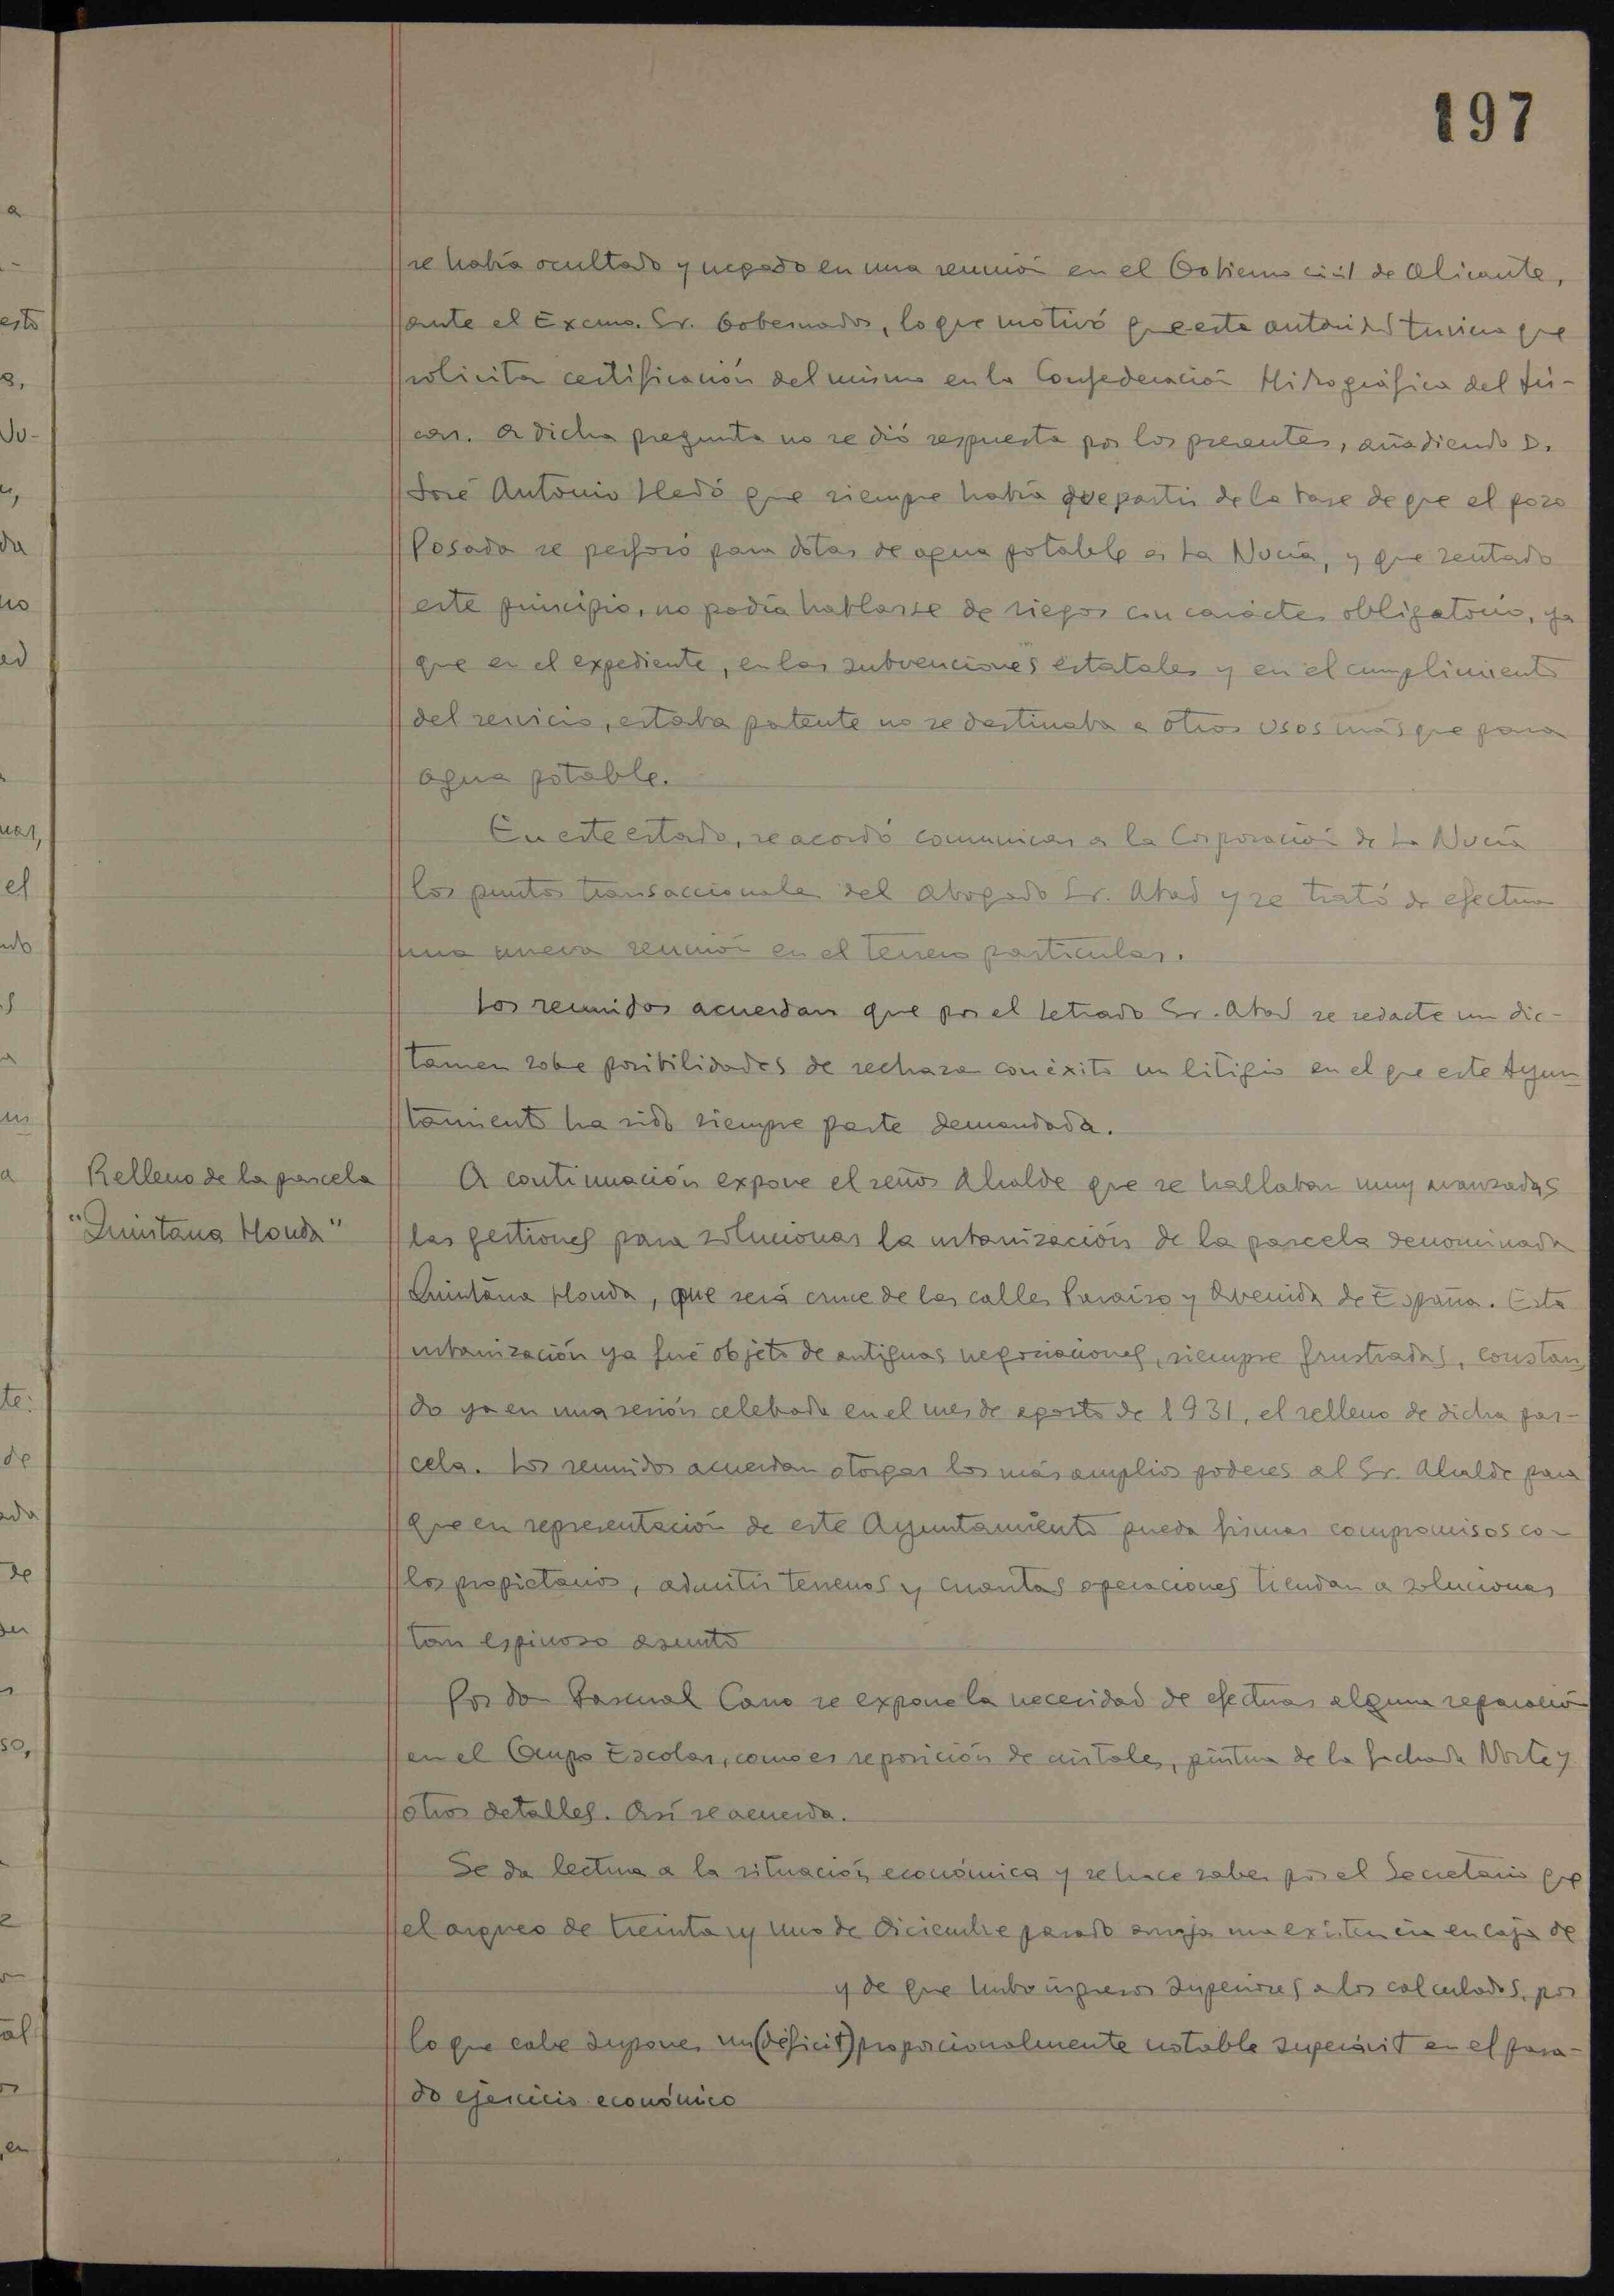 197
se había ocultado y negado en una reunión en el Gobierno civil de Alicante,
ante el Excmo. Sr. Gobernador, lo que motivó que esta autoridad tuviera que
solicitar certificación del mismo en la Confederación Hidrográfica del Jú-
car. A dicha pregunta no se dió respuesta por los presentes, añadiendo D.
José Antonio Lledó que siempre había que partir de la base de que el pozo
Posada se perforó para dotar de agua potable a La Nucía, y que sentado
este principio, no podía hablarse de riegos con carácter obligatorio, ya
que en el expediente, en las subvenciones estatales y en el cumplimiento
del servicio, estaba patente no se destinaba a otros usos más que para
agua potable.
En este estado, se acordó comunicar a la Corporación de La Nucía
los puntos transaccionales del Abogado Sr. Abad y se trató de efectuar
una nueva reunión en el terreno particular.
Los reunidos acuerdan que por el Letrado Sr. Abad se redacte un dic-
tamen sobre posibilidades de rechazar con éxito un litigio en el que este Ayun-
tamiento ha sido siempre parte demandada.
Relleno de la parcela
"Quintana Honda"
A continuación expone el señor Alcalde que se hallaban muy avanzadas
las gestiones para solucionar la urbanización de la parcela denominada
Quintana Honda, que será cruce de las calles Paraíso y Avenida de España. Esta
urbanización ya fué objeto de antiguas negociaciones, siempre frustradas, constan
do ya en una sesión celebrada en el mes de agosto de 1931, el relleno de dicha par-
cela. Los reunidos acuerdan otorgar los más amplios poderes al Sr. Alcalde para
que en representación de este Ayuntamiento pueda firmar compromisos co-
los propietarios, admitir terrenos y cuantas operaciones tiendan a solucionar
tan espinoso asunto
Por don Pascual Cano se expone la necesidad de efectuar alguna reparación
en el Grupo Escolar, como es reposición de cristales, pintura de la fachada Norte y
otros detalles. Así se acuerda.
Se da lectura a la situación económica y se hace saber por el Secretario que
el arqueo de treinta y uno de Diciembre pasado arroja una existencia en caja de
y de que hubo ingresos superiores a los calculados, por
lo que cabe suponer un (déficit) proporcionalmente notable superávit en el pasa-
do ejercicio económico